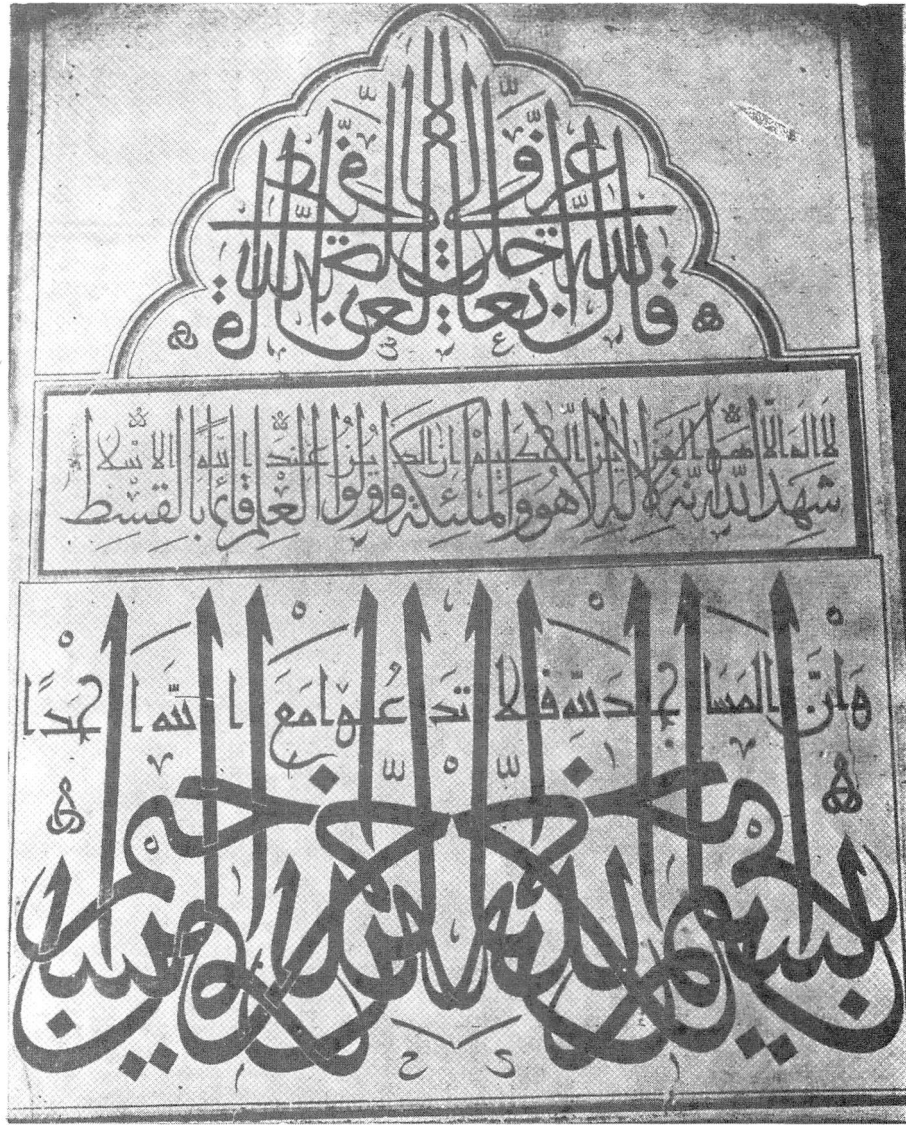 قال الله تعالى
شَهِدَ اللّٰهُ اَنَّهُ لَا اِلٰهَ اِلَّا هُوَ وَالْمَلٰئِكَةُ وَاُولُوا الْعِلْمِ قَائِمًا بِالْقِسْطِ
لَا اِلٰهَ اِلَّا هُوَ الْعَزِيزُ الْحَكِيمُ اِنَّ الدِّينَ عِنْدَ اللّٰهِ الْاِسْلَامُ
وَاَنَّ الْمَسَاجِدَ لِلّٰهِ فَلَا تَدْعُوا مَعَ اللّٰهِ اَحَدًا
بسم الله الرحمن الرحيم